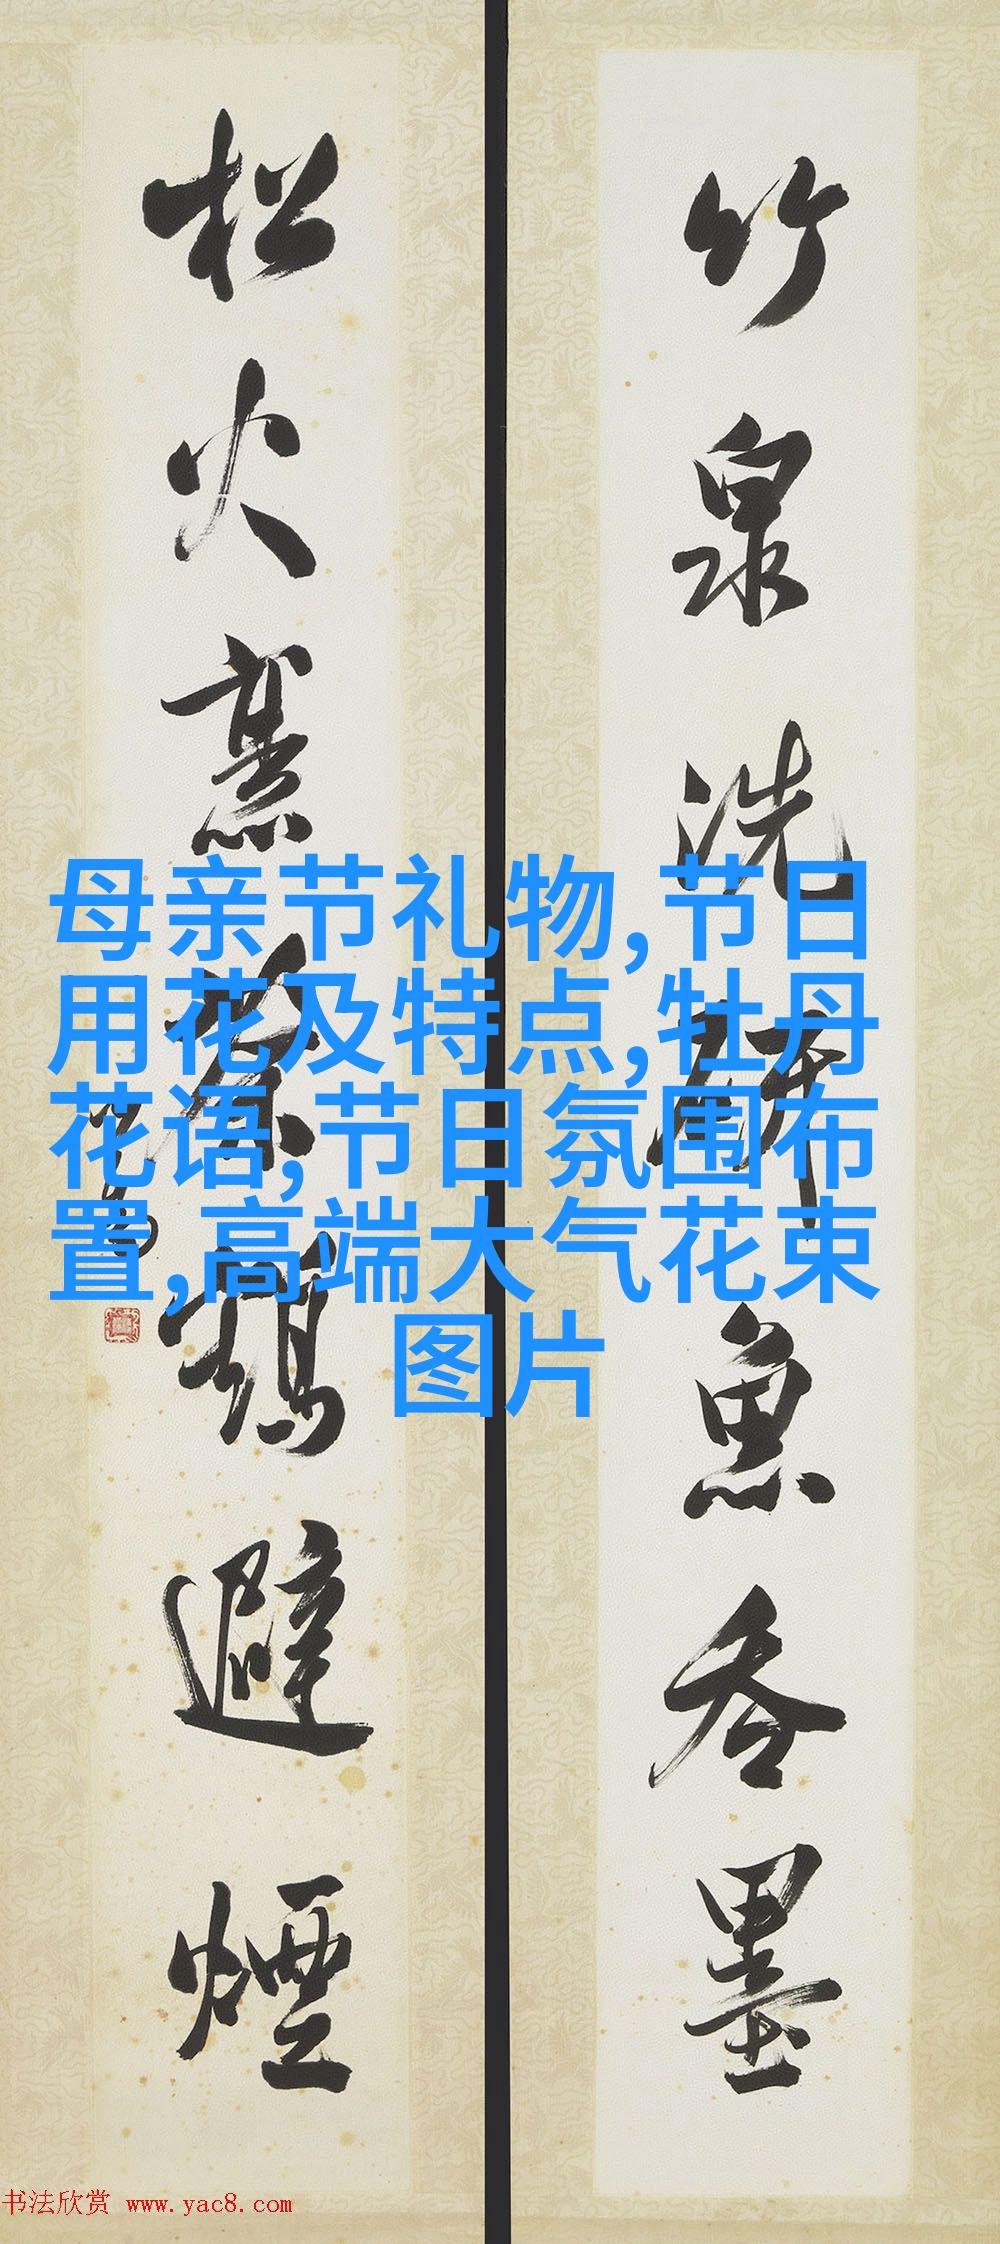 竹泉洗研魚吞墨
松火烹茶鶴避煙
母亲节礼物,节日
用花及特点,牡丹
花语,节日氛围布
置,高端大气花束
图片
书法欣赏 www.yac8.com